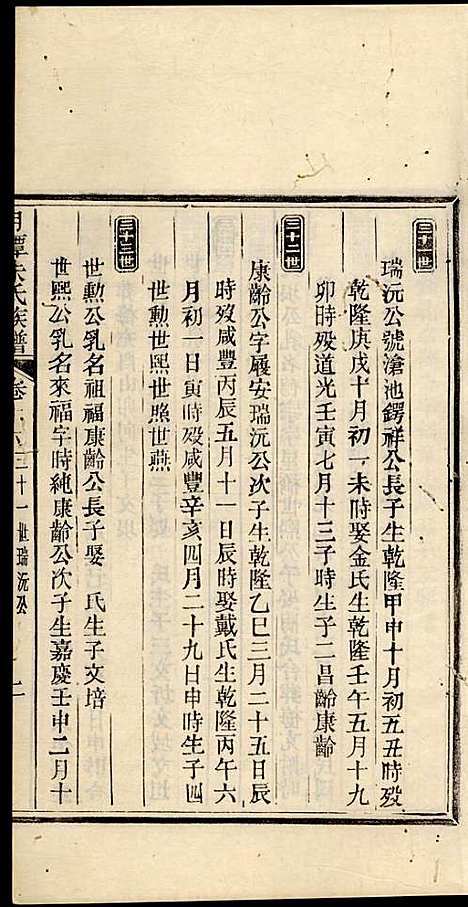 三十一世
瑞沅公號滄池鍔祥公長子生乾隆甲申十月初五丑時歿
乾隆庚戌十月初一未時娶金氏生乾隆壬午五月十九
卯時歿道光壬寅七月十三子時生子二昌齡康齡
三十二世
康齡公字履安瑞沅公次子生乾隆乙巳三月二十五日辰
時歿咸豐丙辰五月十一日辰時娶戴氏生乾隆丙午六
月初一日寅時歿咸豐辛亥四月二十九日申時生子四
世勲世熙世照世燕
三十三世
世勲公乳名祖福康齡公長子娶 氏生子文培
世熙公乳名來福字時純康齡公次子生嘉慶壬申二月十
月潭朱氏族譜 卷十六 三十一世瑞沅公